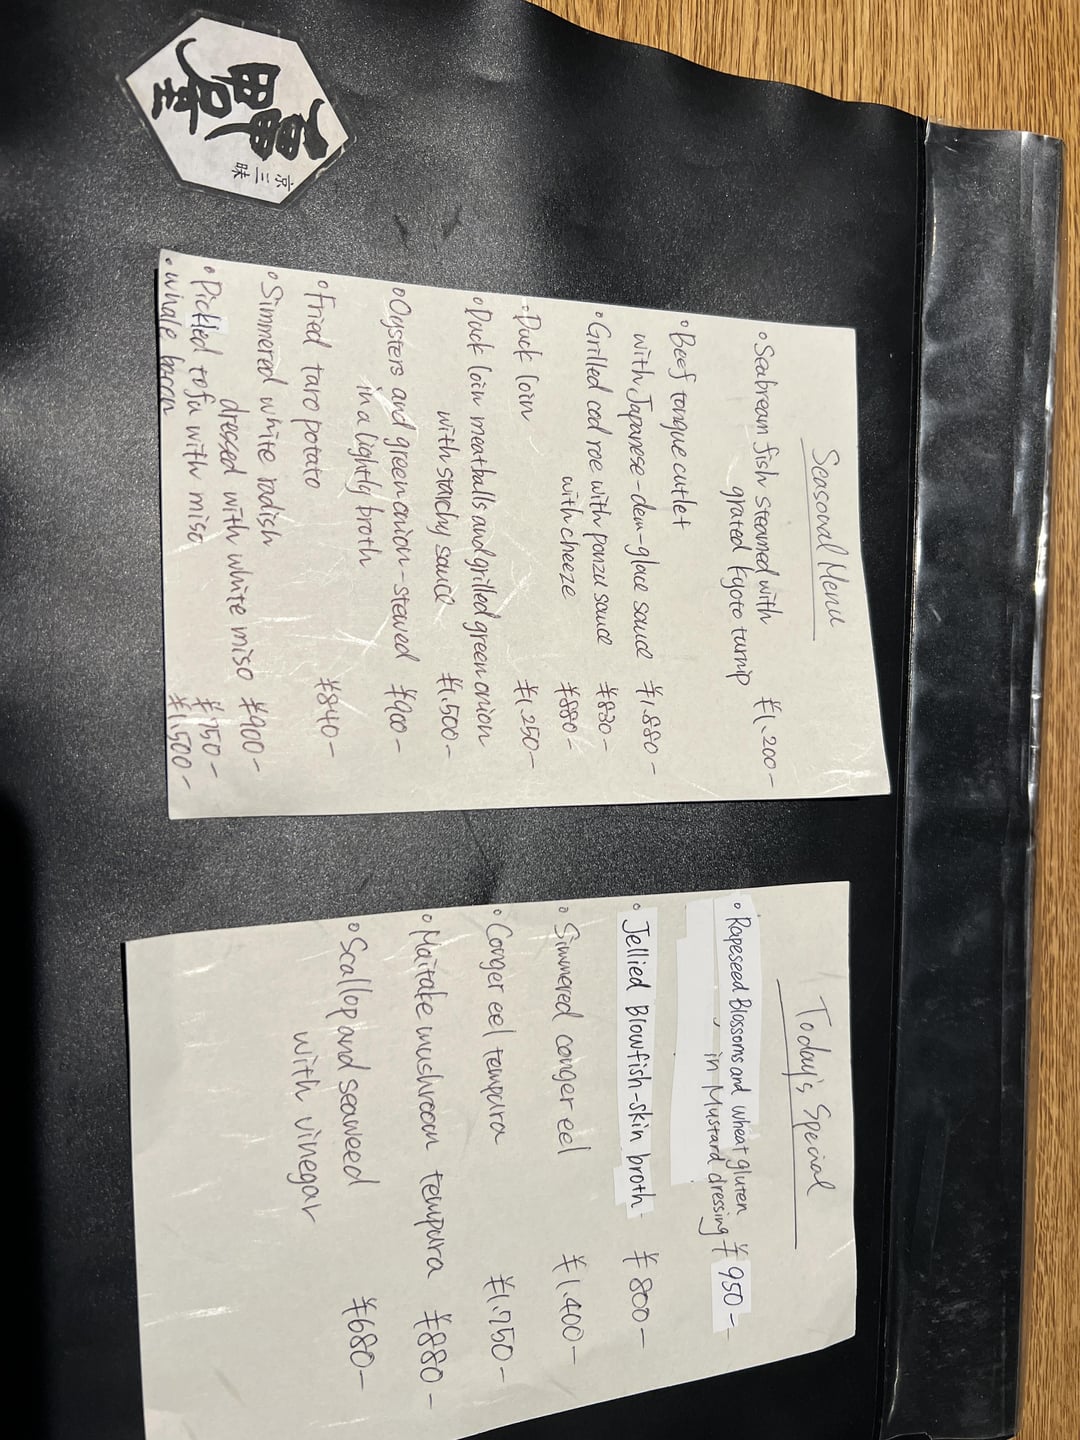 京三昧
Seasonal Menu
• Seabream fish steamed with
grated Kyoto turnip ¥1,200-
• Beef tongue cutlet
with Japanese-dem-glace sauce ¥1,880-
• Grilled cod roe with ponzu sauce ¥830-
with cheeze ¥880-
• Duck loin ¥1,250-
• Duck loin meatballs and grilled green onion
with starchy sauce ¥1,500-
• Oysters and green onion-stewed ¥900-
in a lightly broth
• Fried taro potato ¥840-
• Simmered white radish
dressed with white miso ¥900-
• Pickled tofu with miso ¥750-
• whale bacon ¥1,500-
Today's Special
• Rapeseed Blossoms and wheat gluten
in Mustard dressing ¥950-
• Jellied Blowfish-skin broth ¥800-
• Simmered conger eel ¥1,400-
• Conger eel tempura ¥1,750-
• Maitake mushroom tempura ¥880-
• Scallop and seaweed
with vinegar ¥680-